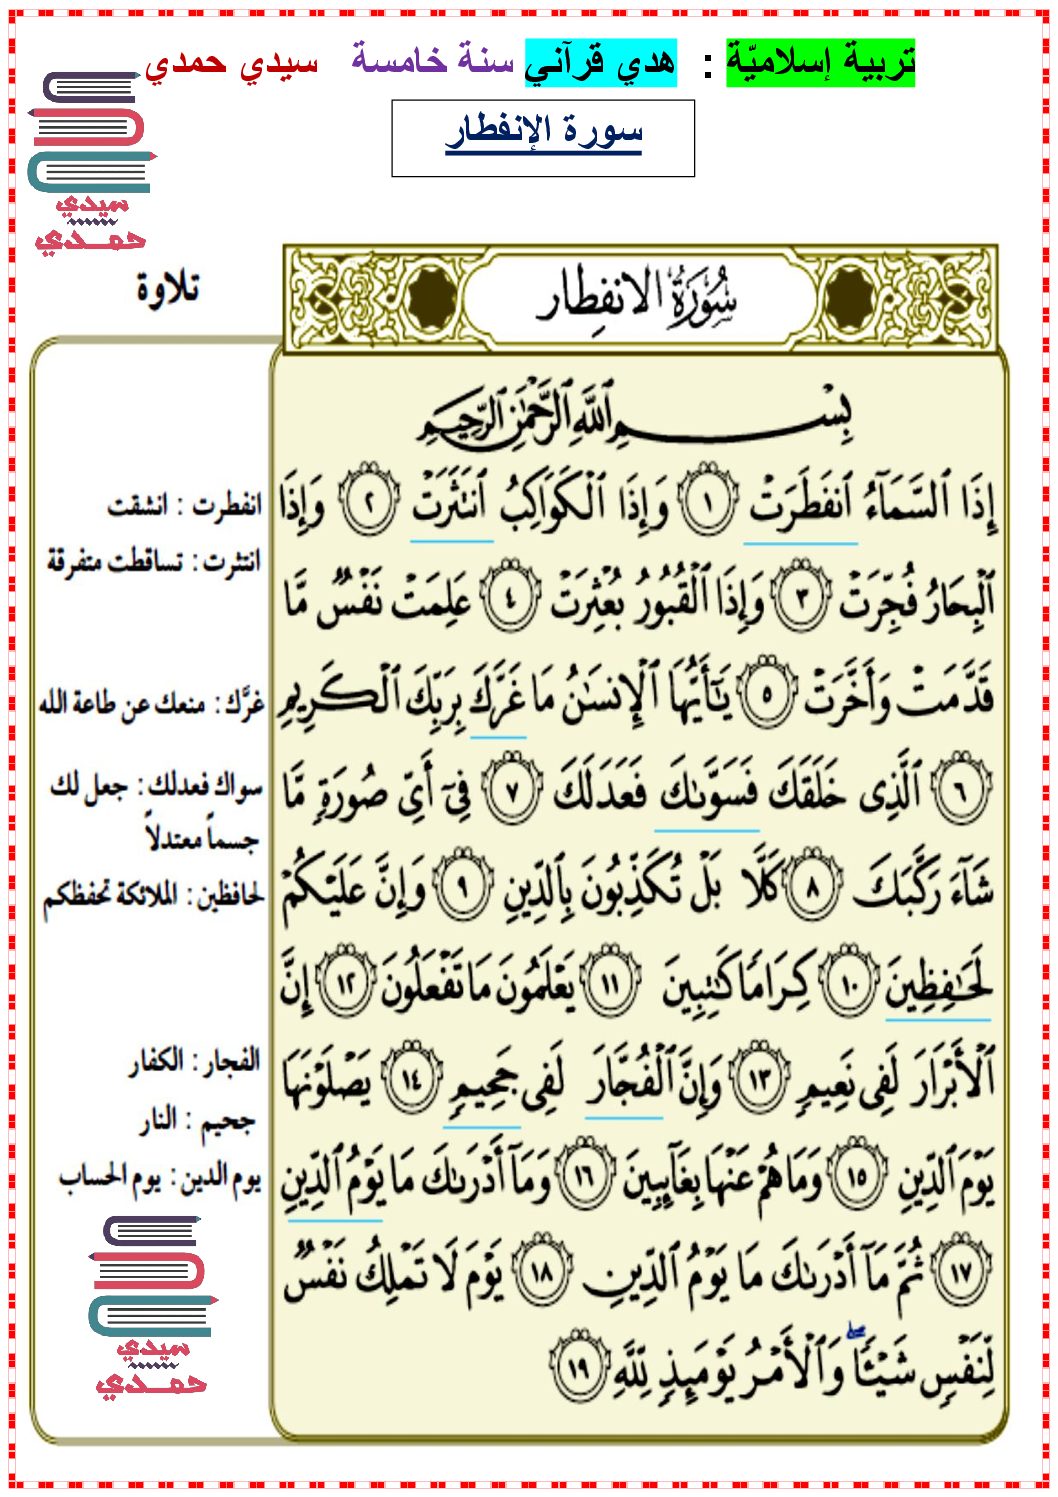 تربية إسلاميّة : هدي قرآني سنة خامسة سيدي حمدي
سورة الإنفطار
سيدي
حمدي
تلاوة
سُورَةُ الانفِطار
بِسْمِ ٱللَّهِ ٱلرَّحْمَٰنِ ٱلرَّحِيمِ
إِذَا ٱلسَّمَآءُ ٱنفَطَرَتْ ١ وَإِذَا ٱلْكَوَاكِبُ ٱنتَثَرَتْ ٢ وَإِذَا
ٱلْبِحَارُ فُجِّرَتْ ٣ وَإِذَا ٱلْقُبُورُ بُعْثِرَتْ ٤ عَلِمَتْ نَفْسٌ مَّا
قَدَّمَتْ وَأَخَّرَتْ ٥ يَٰٓأَيُّهَا ٱلْإِنسَٰنُ مَا غَرَّكَ بِرَبِّكَ ٱلْكَرِيمِ
٦ ٱلَّذِى خَلَقَكَ فَسَوَّىٰكَ فَعَدَلَكَ ٧ فِىٓ أَىِّ صُورَةٍ مَّا
شَآءَ رَكَّبَكَ ٨ كَلَّا بَلْ تُكَذِّبُونَ بِٱلدِّينِ ٩ وَإِنَّ عَلَيْكُمْ
لَحَٰفِظِينَ ١٠ كِرَامًا كَٰتِبِينَ ١١ يَعْلَمُونَ مَا تَفْعَلُونَ ١٢ إِنَّ
ٱلْأَبْرَارَ لَفِى نَعِيمٍ ١٣ وَإِنَّ ٱلْفُجَّارَ لَفِى جَحِيمٍ ١٤ يَصْلَوْنَهَا
يَوْمَ ٱلدِّينِ ١٥ وَمَا هُمْ عَنْهَا بِغَآئِبِينَ ١٦ وَمَآ أَدْرَىٰكَ مَا يَوْمُ ٱلدِّينِ
١٧ ثُمَّ مَآ أَدْرَىٰكَ مَا يَوْمُ ٱلدِّينِ ١٨ يَوْمَ لَا تَمْلِكُ نَفْسٌ
لِّنَفْسٍ شَيْـًٔا ۖ وَٱلْأَمْرُ يَوْمَئِذٍ لِّلَّهِ ١٩
انفطرت : انشقت
انتثرت : تساقطت متفرقة
غرَّك : منعك عن طاعة الله
سواك فعدلك : جعل لك
جسماً معتدلاً
لحافظين : الملائكة تحفظكم
الفجار : الكفار
جحيم : النار
يوم الدين : يوم الحساب
سيدي
حمدي